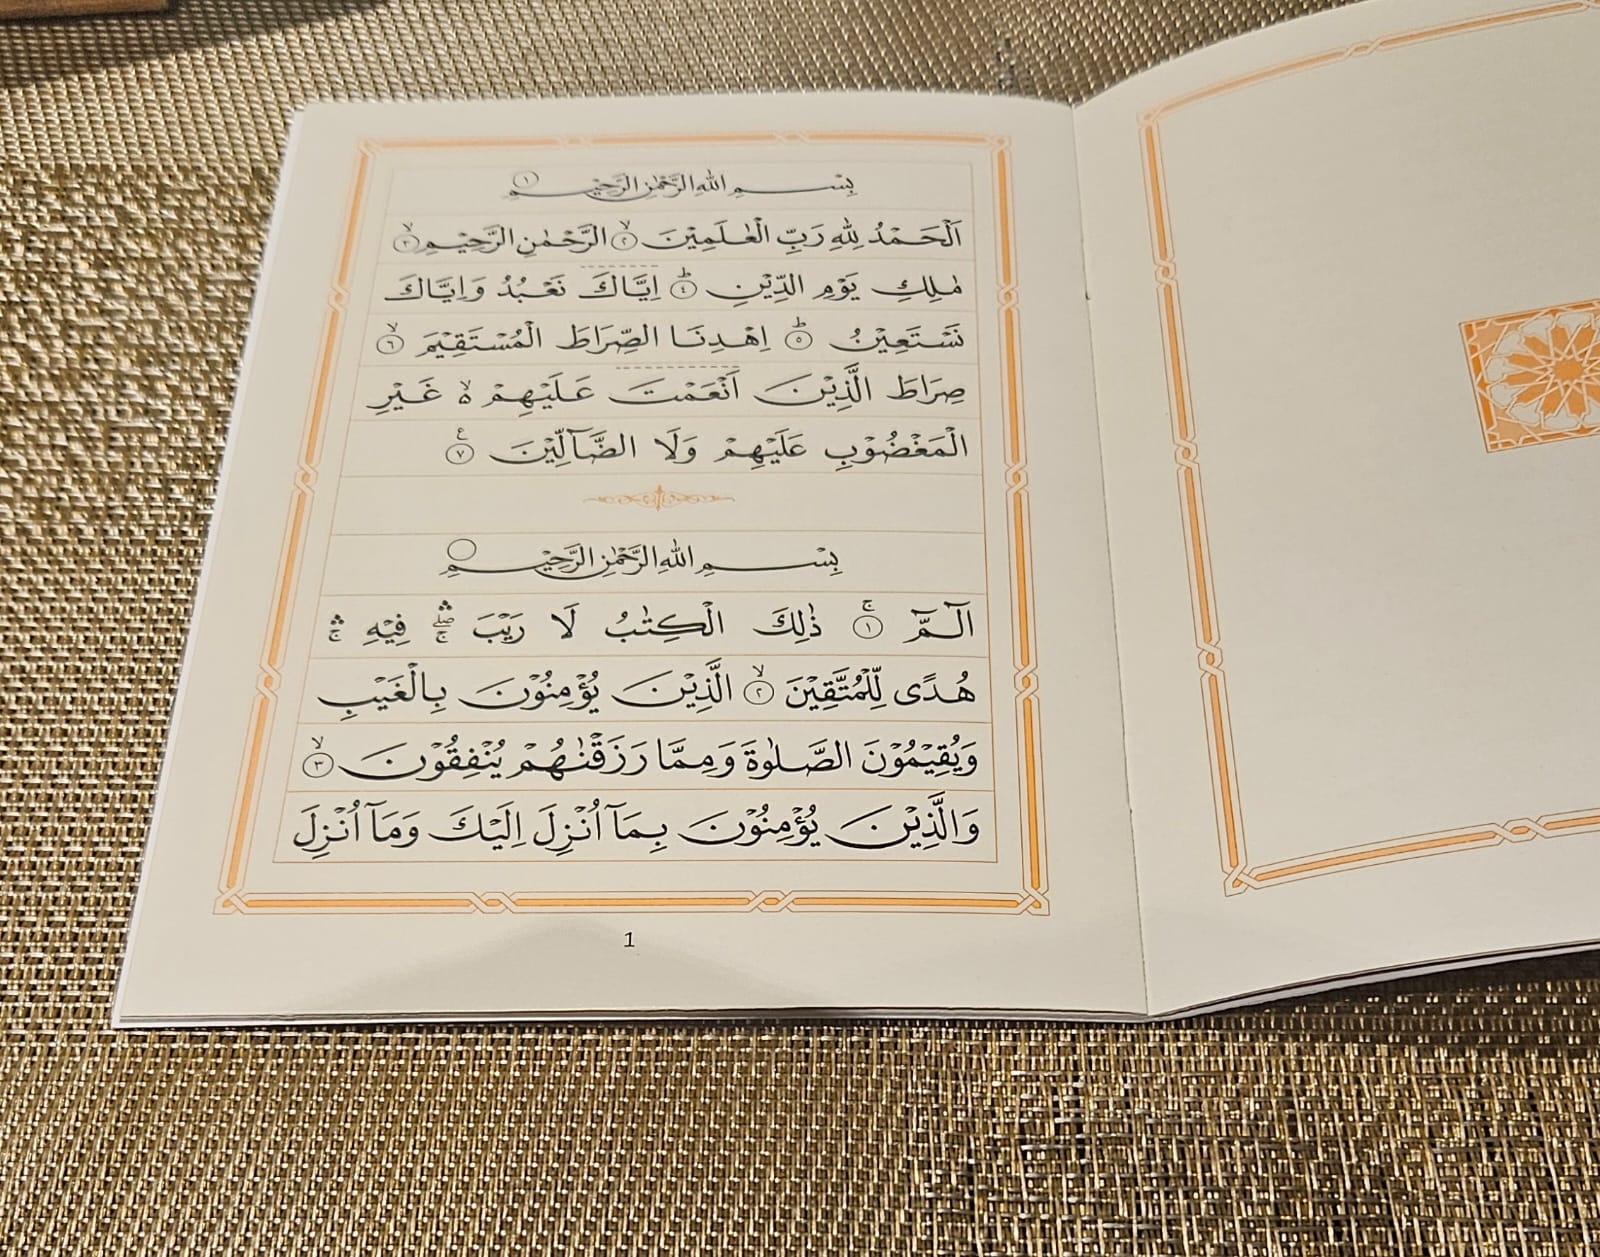 بِسْمِ اللهِ الرَّحْمٰنِ الرَّحِيْمِ ١
اَلْحَمْدُ لِلّٰهِ رَبِّ الْعٰلَمِيْنَ ۙ‏ ٢ الرَّحْمٰنِ الرَّحِيْمِ ۙ‏ ٣
مٰلِكِ يَوْمِ الدِّيْنِ ؕ ٤ اِيَّاكَ نَعْبُدُ وَاِيَّاكَ
نَسْتَعِيْنُ ؕ ٥ اِهْدِنَا الصِّرَاطَ الْمُسْتَقِيْمَ ۙ ٦
صِرَاطَ الَّذِيْنَ اَنْعَمْتَ عَلَيْهِمْ ۙ۬ غَيْرِ
الْمَغْضُوْبِ عَلَيْهِمْ وَلَا الضَّآلِّيْنَ ٧ ع
بِسْمِ اللهِ الرَّحْمٰنِ الرَّحِيْمِ
الٓـمّٓ ۚ ١ ذٰلِكَ الْكِتٰبُ لَا رَيْبَ ۛۖۚ فِيْهِ ۛۚ
هُدًى لِّلْمُتَّقِيْنَ ۙ ٢ الَّذِيْنَ يُؤْمِنُوْنَ بِالْغَيْبِ
وَيُقِيْمُوْنَ الصَّلٰوةَ وَمِمَّا رَزَقْنٰهُمْ يُنْفِقُوْنَ ۙ ٣
وَالَّذِيْنَ يُؤْمِنُوْنَ بِمَآ اُنْزِلَ اِلَيْكَ وَمَآ اُنْزِلَ
1